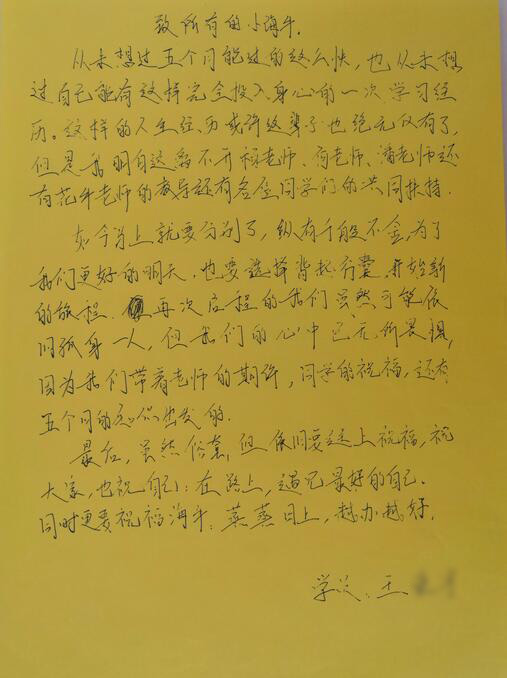 致所有的小海牛.
从未想过五个月能过的这么快，也从未想
过自己能有这样完全投入身心的一次学习经
历。这样的人生经历或许这辈子也绝无仅有了，
但是我明白这离不开禄老师、俞老师、潘老师还
有花牛老师的教导还有各位同学们的共同扶持.
如今马上就要分别了，纵有千般不舍，为了
我们更好的明天，也要选择背起行囊，开始新
的旅程. 再次启程的我们虽然可能依
旧孤身一人，但我们的心中已无所畏惧，
因为我们带着老师的期许，同学的祝福，还有
五个月的 出发的.
最后，虽然俗套，但依旧要送上祝福，祝
大家，也祝自己：在路上，遇见最好的自己.
同时更要祝福海牛：蒸蒸日上，越办越好.
学员：王